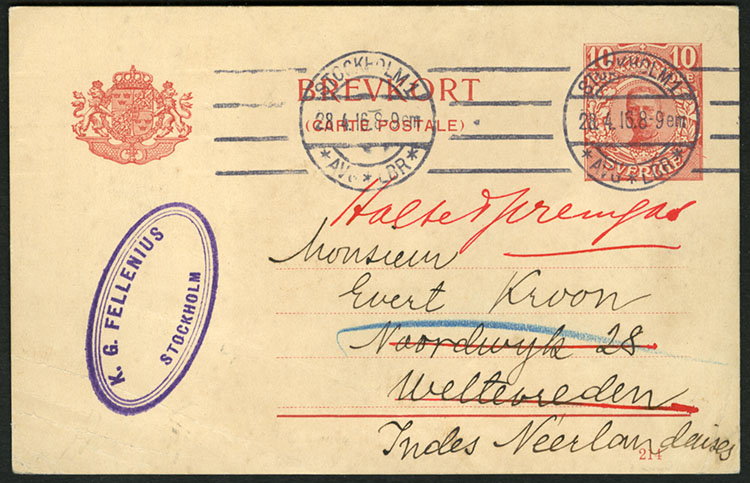 10 10
SVERIGE
BREVKORT
(CARTE POSTALE)
STOCKHOLM 1
28.4.16.8-9 em
* AVG * LBR *
STOCKHOLM 1
28.4.16.8-9 em
* AVG * LBR *
K. G. FELLENIUS
STOCKHOLM
Monsieur
Evert Kroon
Noordwyk 28
Weltevreden
Indes Néerlandaises
214